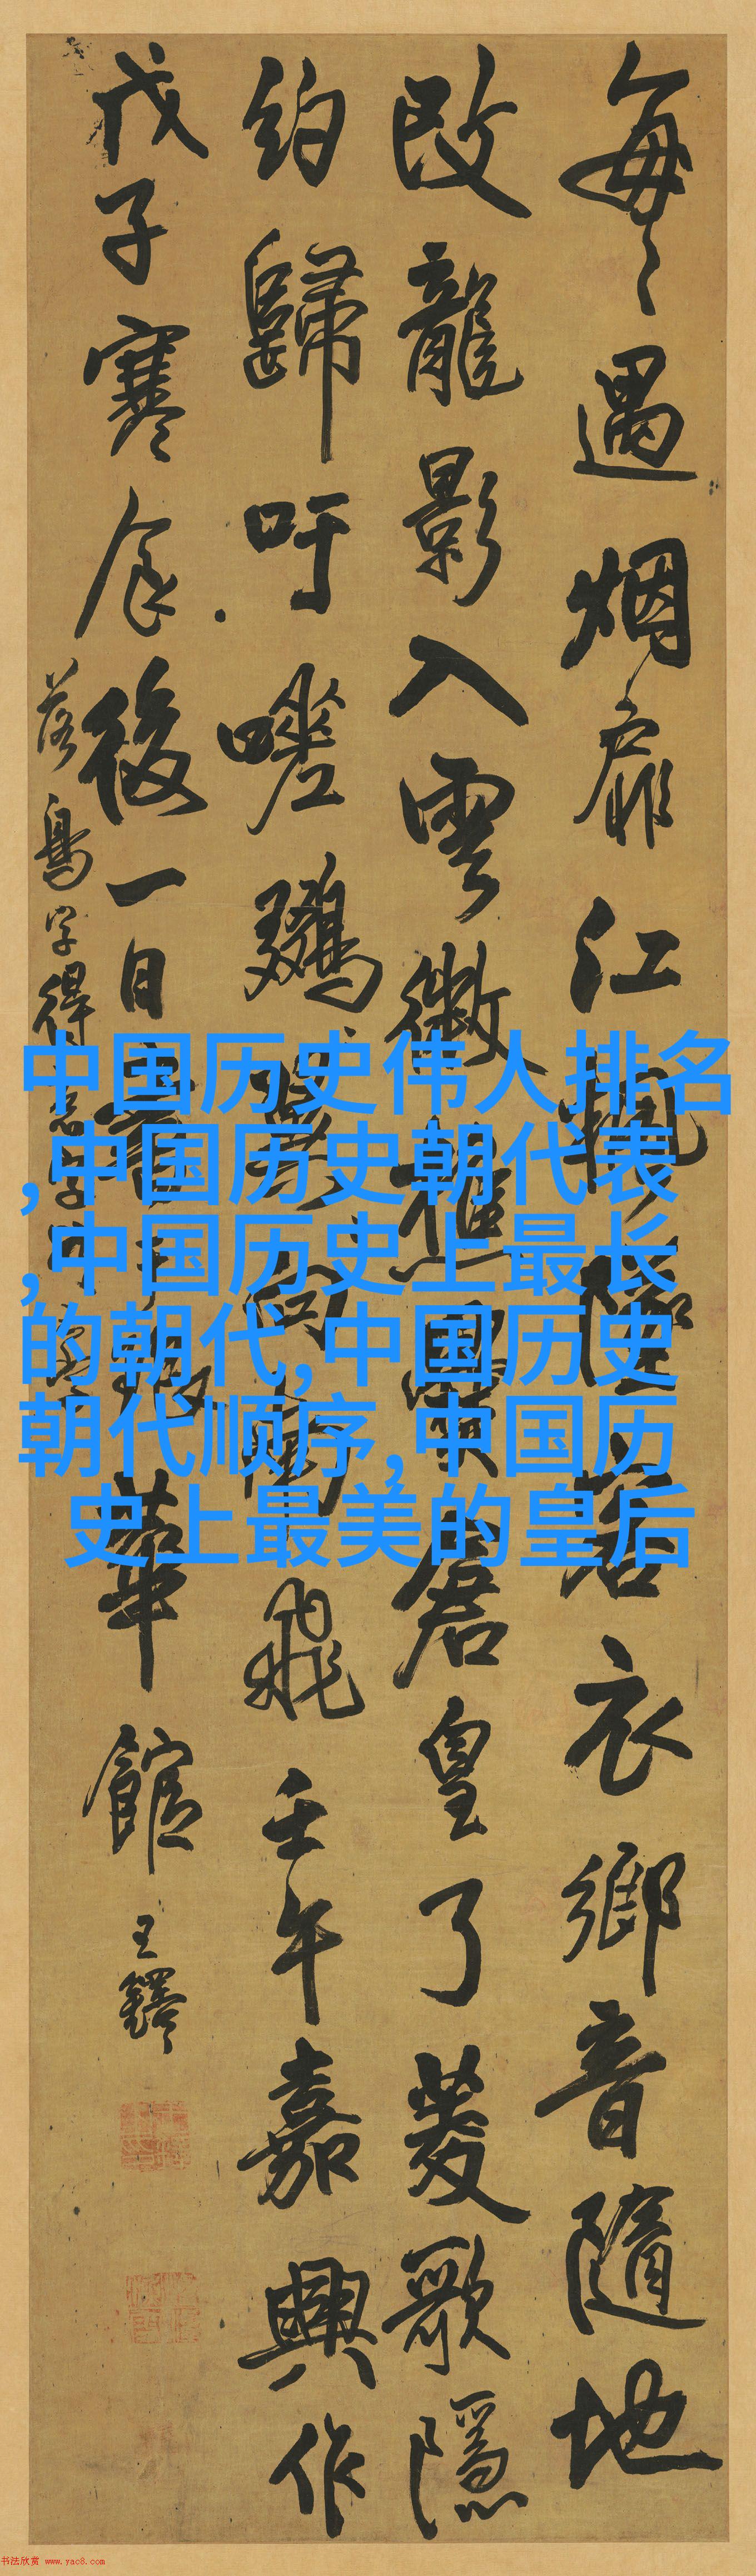 每々遇烟扉江帆隱衣鄉音隨地
改龍影入雲微樵皇了菱歌隱
約歸吁嗟向南飛壬午嘉興作
戊子寒食後一日書于琅華館王鐸
落鳥字得
中国历史伟人排名
,中国历史朝代表
,中国历史上最长
的朝代,中国历史
朝代顺序,中国历
史上最美的皇后
书法欣赏 www.yac8.com